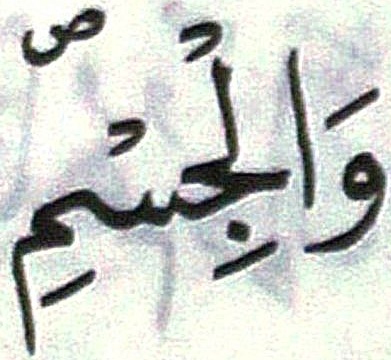 وَالْجِسْمِ ص